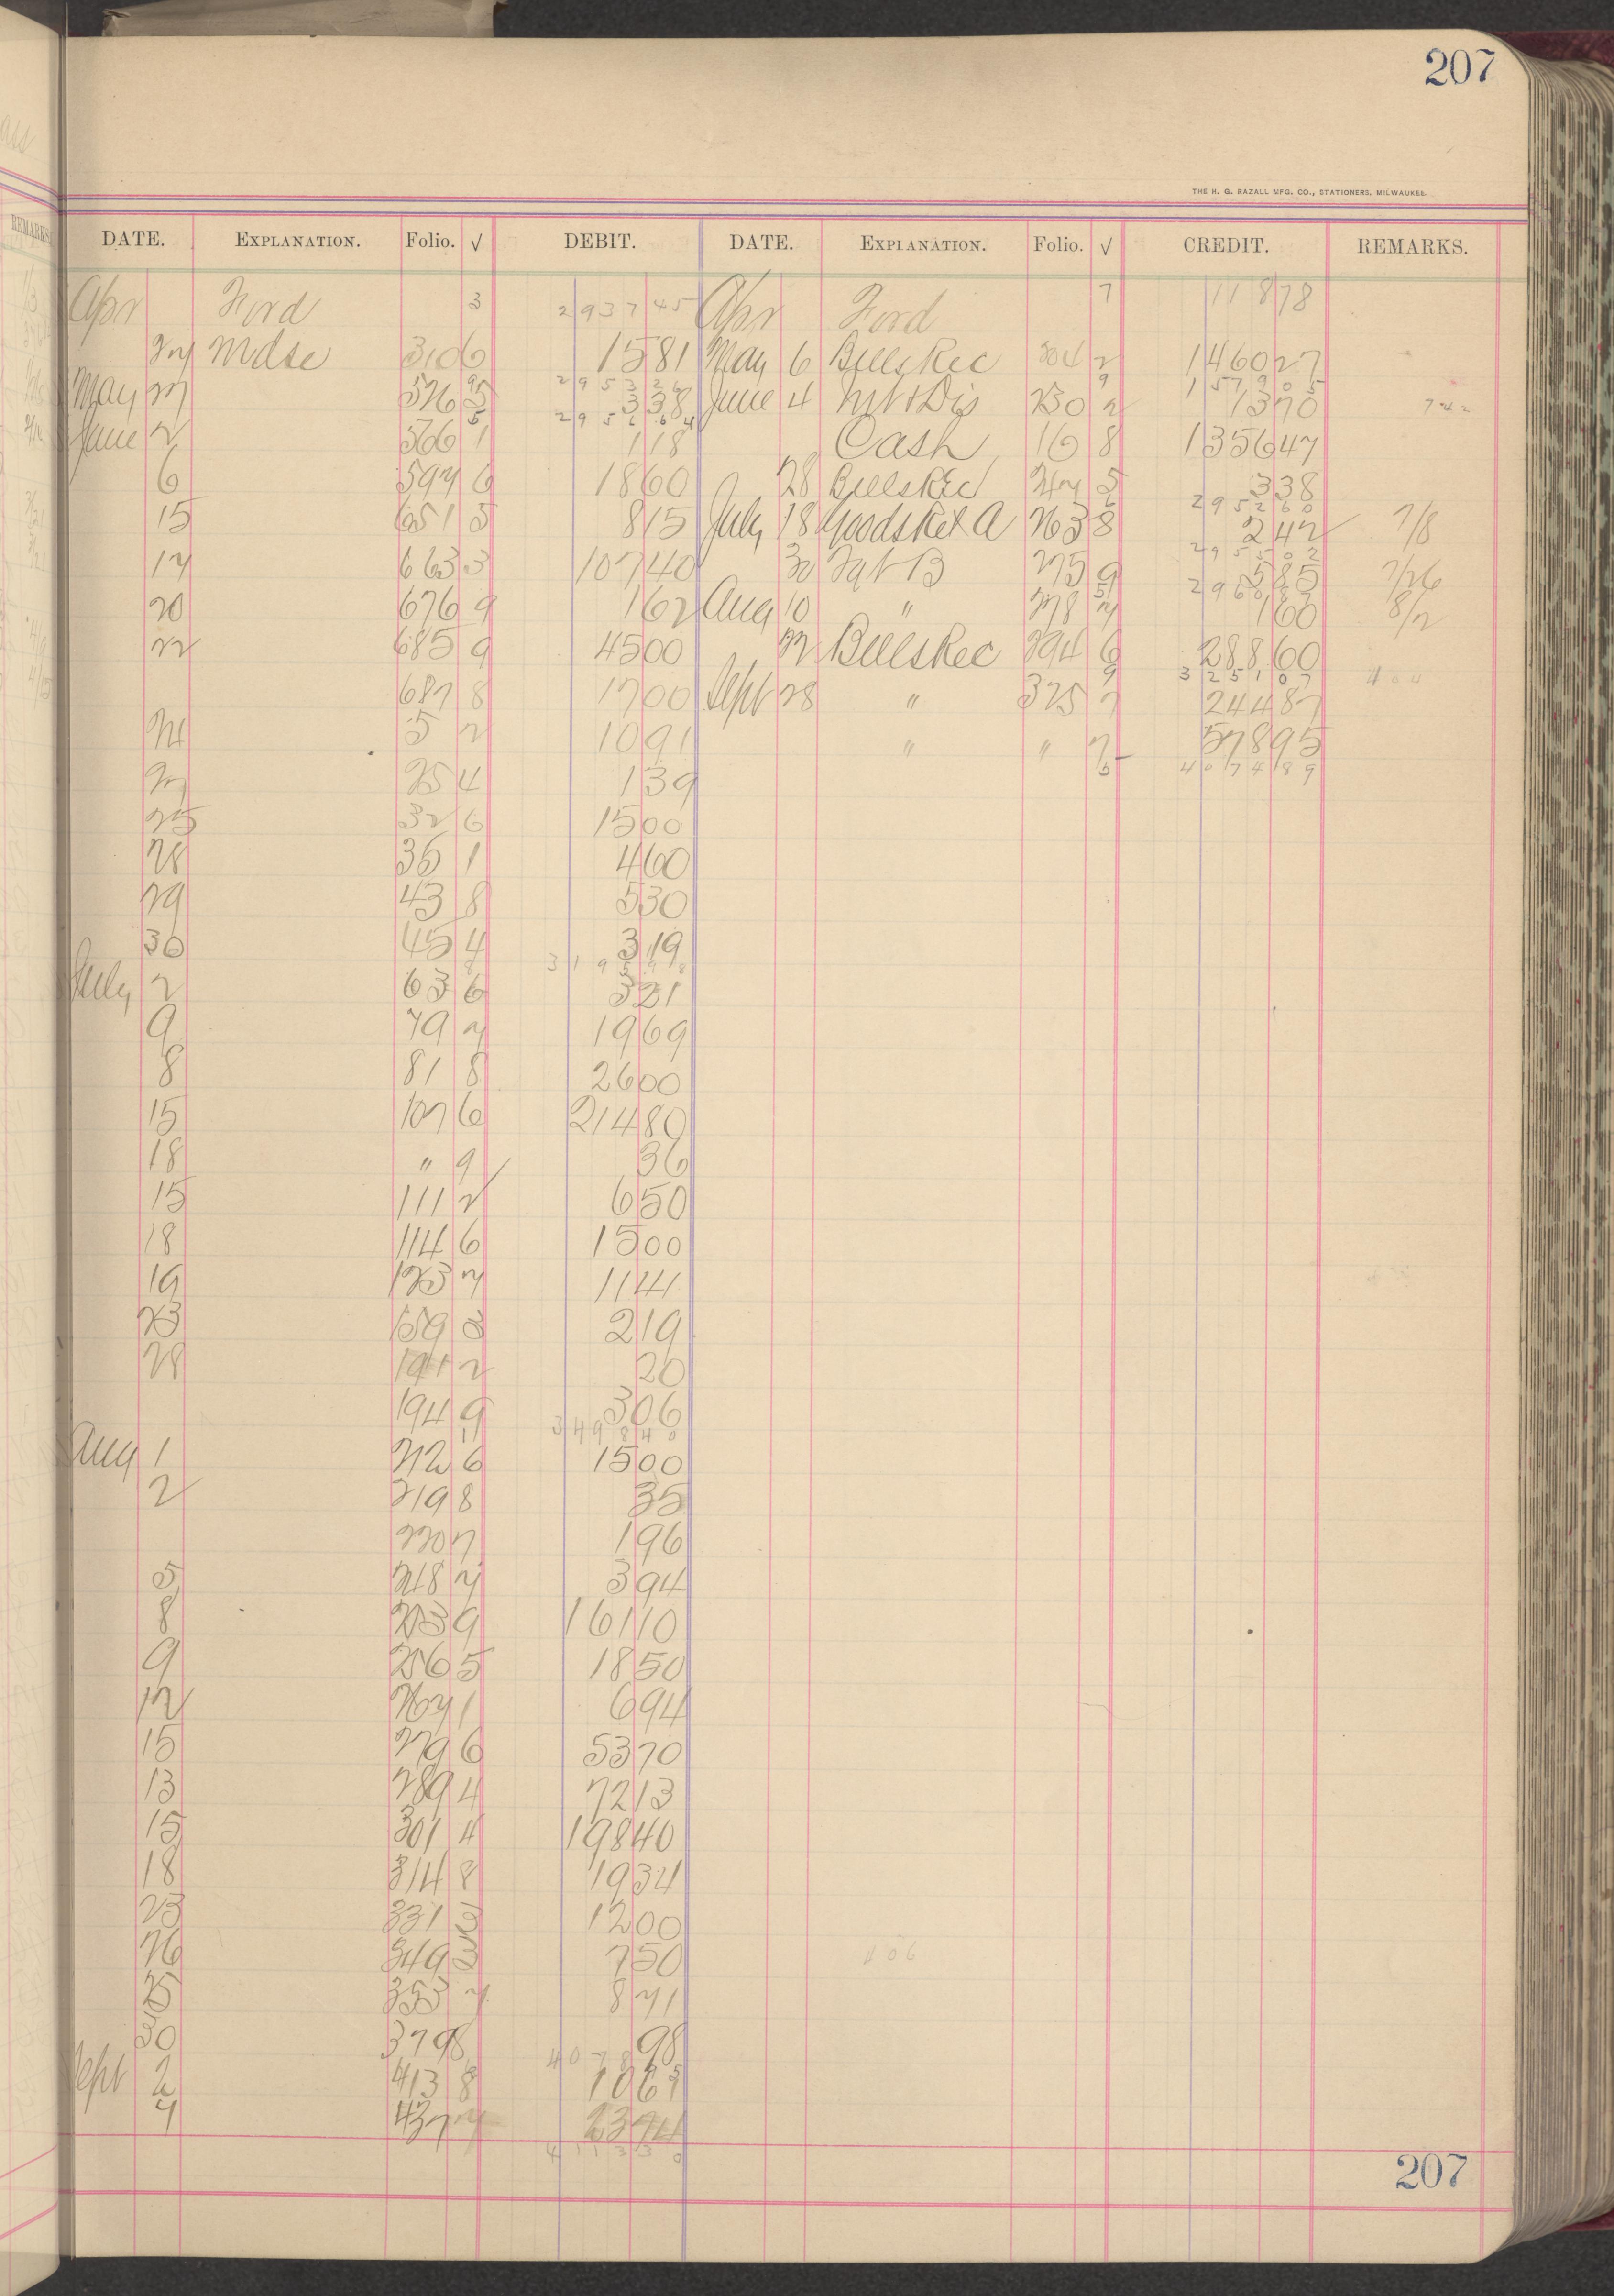 207
THE H. G. RAZALL MFG. CO., STATIONERS, MILWAUKEE.
DATE. EXPLANATION. Folio. √ DEBIT. DATE. EXPLANATION. Folio. √ CREDIT. REMARKS.
Apr Ford 3 2937 45 Apr Ford 7 118 78
27 Mdse 310 6 15 81 May 6 Bills Rec 304 2 1460 27
2953 26 9 1579 05
May 27 526 3 38 June 4 Int + Dis 250 2 13 70 742
2956 64
June 2 566 1 1 18 Cash 16 8 1356 47
6 594 6 18 60 28 Bills Rec 247 5 3 38
2952 60
15 651 5 8 15 July 18 Goods Ret A 263 8 2 42 7/8
2955 02
17 663 3 107 40 30 275 9 5 85 7/26
20 676 9 1 62 Aug 10 " 278 7 1 60 8/2
22 685 9 45 00 22 Bills Rec 294 6 288 60
3251 07 404
687 8 17 00 Sept 28 " 325 7 244 87
24 5 2 10 91 " " 7 578 95
4074 89
27 25 4 1 39
25 32 6 15 00
28 35 1 4 60
29 43 8 5 30
30 45 4 3 19
July 2 63 6 3 21
9 79 7 19 69
8 81 8 26 00
15 107 6 214 80
18 " 9 36
15 111 2 6 50
18 114 6 15 00
19 123 7 11 41
23 159 3 2 19
28 191 2 20
194 9 3 06
3498 40
Aug 1 212 6 15 00
2 219 8 35
220 7 1 96
5 248 7 3 94
8 253 9 161 10
9 256 5 18 50
12 267 1 6 94
15 279 6 53 70
13 289 4 72 13
15 301 4 198 40
18 314 8 19 34
23 331 12 00
26 349 3 7 50 406
25 353 7 8 71
30 379 8 98
Sept 2 413 8 10 61
7 437 7 23 94
4113 30
207